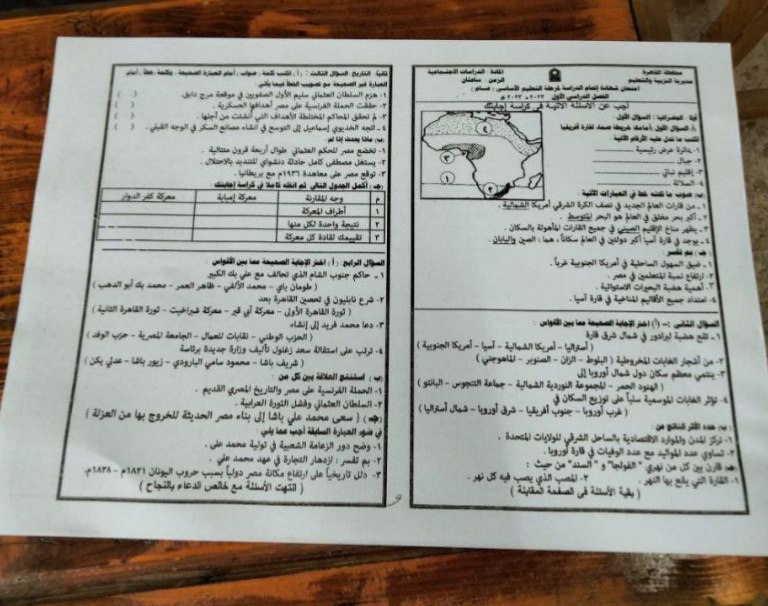 محافظة القاهرة
مديرية التربية والتعليم
المادة: الدراسات الاجتماعية
الزمن: ساعتان
امتحان شهادة إتمام الدراسة لمرحلة التعليم الأساسي
الفصل الدراسي الأول ٢٠٢٢ - ٢٠٢٣م
أجب عن الأسئلة الآتية في كراسة إجابتك
أولا: الجغرافيا: السؤال الأول:
أ) أمامك خريطة صماء لقارة أفريقيا
اكتب ما تدل عليه الأرقام الآتية :
١- دائرة عرض رئيسية
٢- جبال
٣- إقليم نباتي
٤- السلالة
١
٢
٣
٤
ب: صوب ما تحته خط في العبارات الآتية
١- من قارات العالم الجديد في نصف الكرة الشرقي أمريكا الشمالية .
٢- أكبر بحر مغلق في العالم هو البحر المتوسط .
٣- يظهر مناخ الإقليم الصيني في جميع القارات المأهولة بالسكان .
٤- يوجد في قارة آسيا أكبر دولتين في العالم سكاناً ، هما : الصين واليابان .
ج: بم تفسر
١- ضيق السهول الساحلية في أمريكا الجنوبية غرباً .
٢- ارتفاع نسبة المتعلمين في مصر .
٣- أهمية هضبة البحيرات الاستوائية .
٤- امتداد جميع الأقاليم المناخية في قارة آسيا .
السؤال الثاني :- (أ) اختر الإجابة الصحيحة مما بين الأقواس
١- تقع هضبة لبرادور في شمال شرق قارة
( أستراليا - أمريكا الشمالية - آسيا - أمريكا الجنوبية )
٢- من أشجار الغابات المخروطية ( البلوط - الزان - الصنوبر - الماهوجني )
٣- ينتمي معظم سكان دول شمال أوروبا إلى
( الهنود الحمر - المجموعة النوردية الشمالية - جماعة التنجوس - البانتو )
٤- تؤثر الغابات الموسمية سلباً على توزيع السكان في
( غرب أوروبا - جنوب أفريقيا - شرق أوروبا - شمال أستراليا )
ب: حدد الأثر الناتج عن :
١- تركز المدن والموارد الاقتصادية بالساحل الشرقي للولايات المتحدة .
٢- تساوي عدد المواليد مع عدد الوفيات في قارة أوروبا .
ج: قارن بين كل من نهري " الفولجا " و " السند " من حيث :
١- القارة التي يقع بها النهر . ٢- المصب الذي يصب فيه كل نهر .
( بقية الأسئلة في الصفحة المقابلة )
ثانيا: التاريخ: السؤال الثالث : ( أ ) اكتب كلمة ( صواب ) أمام العبارة الصحيحة ، وكلمة ( خطأ ) أمام
العبارة غير الصحيحة مع تصويب الخطأ فيما يأتي
١- هزم السلطان العثماني سليم الأول الصفويين في موقعة مرج دابق. ( )
٢- حققت الحملة الفرنسية على مصر أهدافها العسكرية . ( )
٣- لم تحقق المحاكم المختلطة الأهداف التي أنشئت من أجلها . ( )
٤- اتجه الخديوي إسماعيل إلى التوسع في إنشاء مصانع السكر في الوجه القبلي . ( )
ب: ماذا يحدث إذا لم
١- تخضع مصر للحكم العثماني طوال أربعة قرون متتالية .
٢- يستغل مصطفى كامل حادثة دنشواي للتنديد بالاحتلال .
٣- توقع مصر على معاهدة ١٩٣٦م مع بريطانيا .
ج: ) أكمل الجدول التالي ثم انقله كاملاً في كراسة إجابتك
م وجه المقارنة معركة إمبابة معركة كفر الدوار
١ أطراف المعركة
٢ نتيجة واحدة لكل منها
٣ تقييمك لقادة كل معركة
السؤال الرابع: ( أ ) اختر الإجابة الصحيحة مما بين الأقواس
١- حاكم جنوب الشام الذي تحالف مع علي بك الكبير
( طومان باي - محمد الألفي - ظاهر العمر - محمد بك أبو الدهب )
٢- شرع نابليون في تحصين القاهرة بعد
( ثورة القاهرة الأولى - معركة أبي قير - معركة شبراخيت - ثورة القاهرة الثانية )
٣- دعا محمد فريد إلى إنشاء
( الحزب الوطني - نقابات للعمال - الجامعة المصرية - حزب الوفد )
٤- ترتب على استقالة سعد زغلول تأليف وزارة جديدة برئاسة
( شريف باشا - محمود سامي البارودي - زيور باشا - عدلي يكن )
ب: استنتج العلاقة بين كل من
١- الحملة الفرنسية على مصر والتاريخ المصري القديم .
٢- السلطان العثماني وفشل الثورة العرابية .
(ج) ( سعى محمد علي باشا إلى بناء مصر الحديثة للخروج بها من العزلة )
في ضوء العبارة السابقة أجب عما يلي :
١- وضح دور الزعامة الشعبية في تولية محمد على .
٢- بم تفسر : ازدهار التجارة في عهد محمد علي .
٣- دلل تاريخياً على ارتفاع مكانة مصر دولياً بسبب حروب اليونان ١٨٢١م - ١٨٢٨م.
( انتهت الأسئلة مع خالص الدعاء بالنجاح )